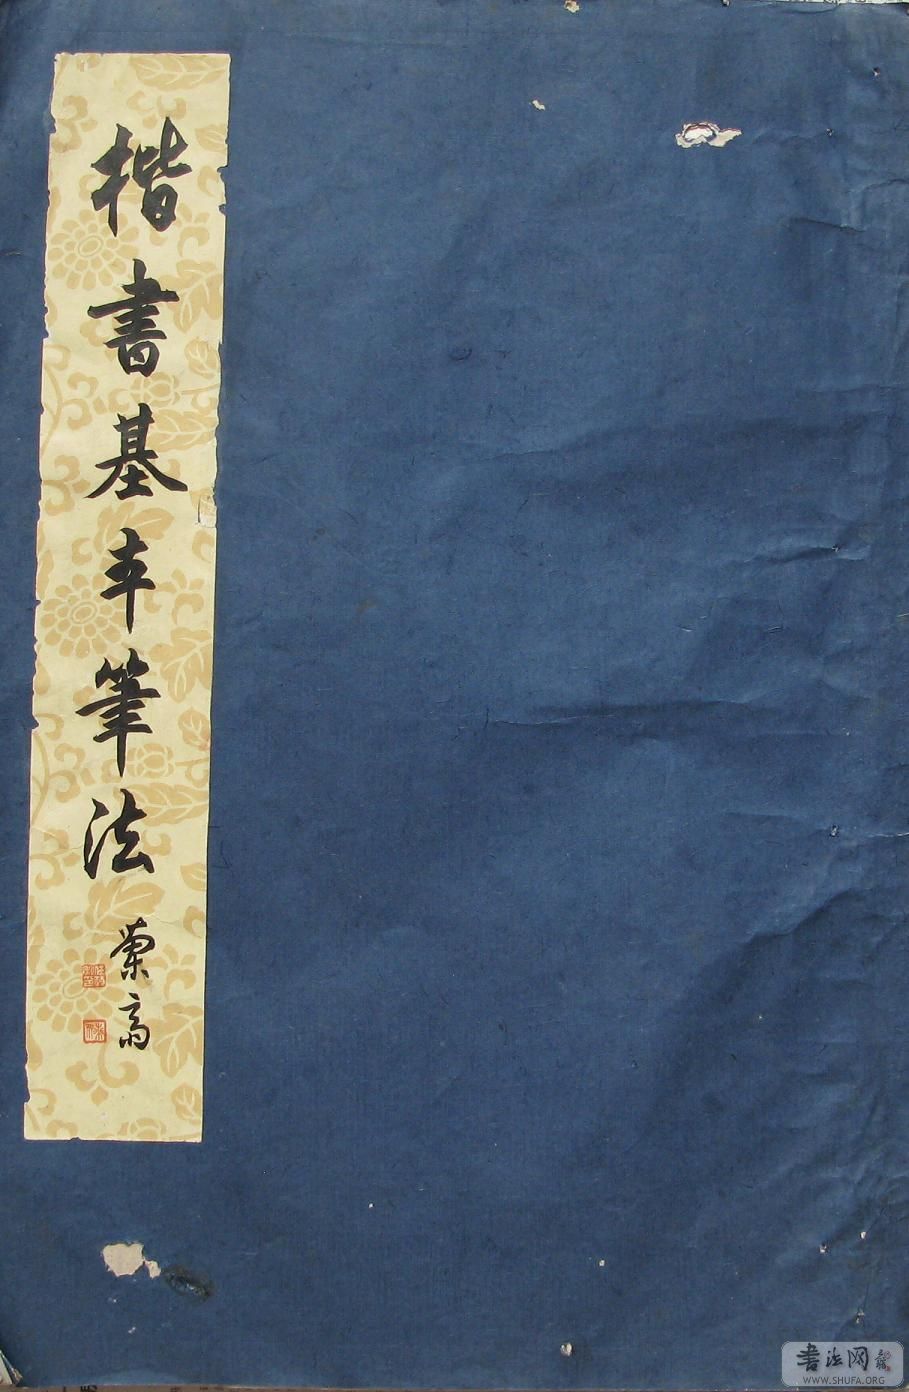 楷書基本筆法
蘭高
書法网
WWW.SHUFA.ORG